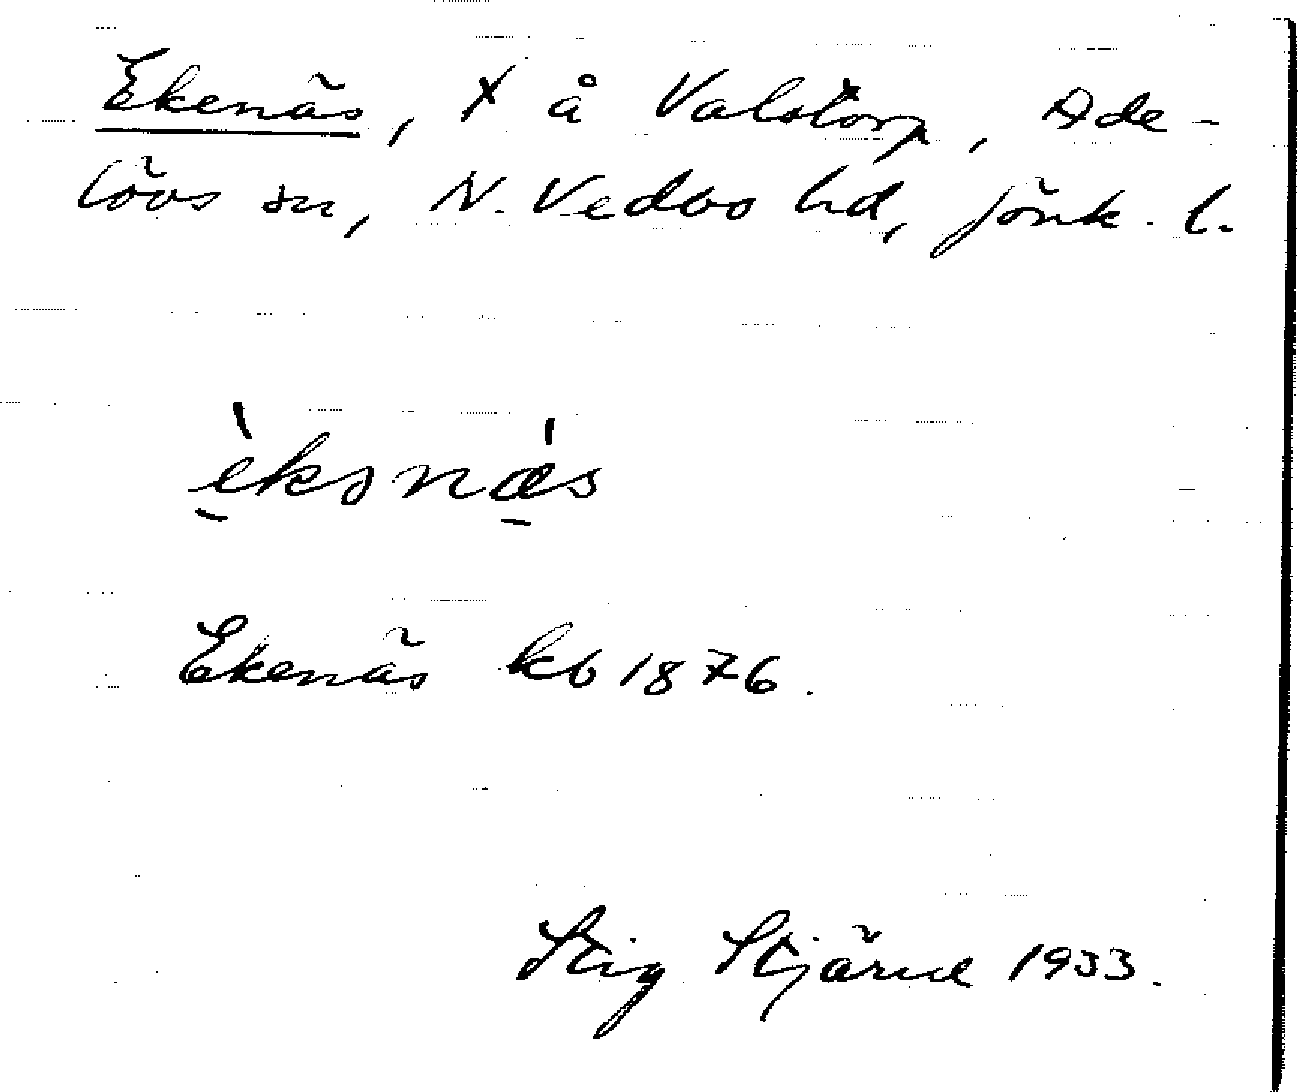 Ekenäs, X å Valstorp, Ade-
lövs sn, N. Vedbo hd, Jönk. l.
èksnǽs
Ekenäs kb 1876.
Stig Stjärne 1933.